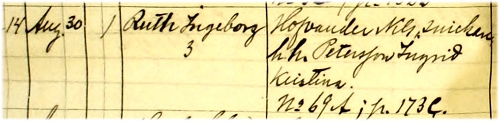 14 Aug. 30 1 Ruth Ingeborg Hofvander Nils, snickare
3 h.h. Petersson Ingrid
Kristina.
No 69 A; p. 173 C.